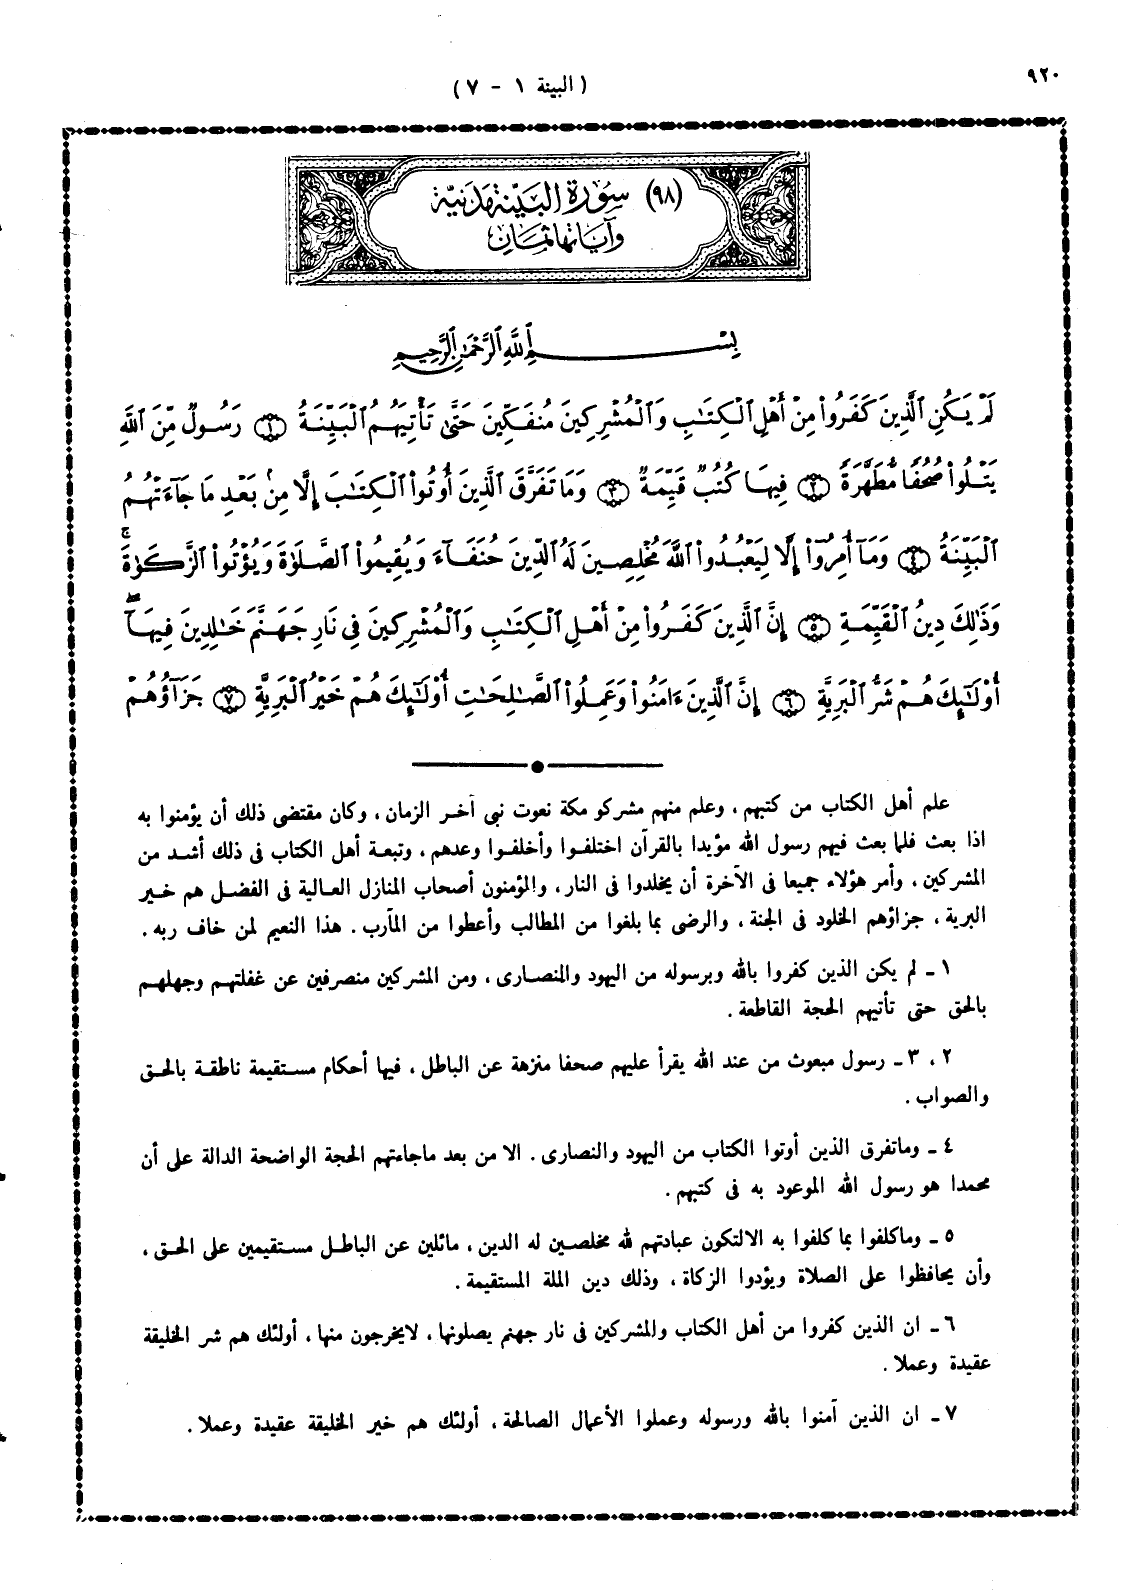 ٩٢٠
( البينة ١ - ٧ )
(٩٨) سورة البينة مدنية
وآياتها ثمان
بِسْمِ ٱللَّهِ ٱلرَّحْمَٰنِ ٱلرَّحِيمِ
لَمْ يَكُنِ ٱلَّذِينَ كَفَرُوا۟ مِنْ أَهْلِ ٱلْكِتَٰبِ وَٱلْمُشْرِكِينَ مُنفَكِّينَ حَتَّىٰ تَأْتِيَهُمُ ٱلْبَيِّنَةُ ١ رَسُولٌ مِّنَ ٱللَّهِ
يَتْلُوا۟ صُحُفًا مُّطَهَّرَةً ٢ فِيهَا كُتُبٌ قَيِّمَةٌ ٣ وَمَا تَفَرَّقَ ٱلَّذِينَ أُوتُوا۟ ٱلْكِتَٰبَ إِلَّا مِنۢ بَعْدِ مَا جَآءَتْهُمُ
ٱلْبَيِّنَةُ ٤ وَمَآ أُمِرُوٓا۟ إِلَّا لِيَعْبُدُوا۟ ٱللَّهَ مُخْلِصِينَ لَهُ ٱلدِّينَ حُنَفَآءَ وَيُقِيمُوا۟ ٱلصَّلَوٰةَ وَيُؤْتُوا۟ ٱلزَّكَوٰةَ ۚ
وَذَٰلِكَ دِينُ ٱلْقَيِّمَةِ ٥ إِنَّ ٱلَّذِينَ كَفَرُوا۟ مِنْ أَهْلِ ٱلْكِتَٰبِ وَٱلْمُشْرِكِينَ فِى نَارِ جَهَنَّمَ خَٰلِدِينَ فِيهَآ ۚ
أُو۟لَٰٓئِكَ هُمْ شَرُّ ٱلْبَرِيَّةِ ٦ إِنَّ ٱلَّذِينَ ءَامَنُوا۟ وَعَمِلُوا۟ ٱلصَّٰلِحَٰتِ أُو۟لَٰٓئِكَ هُمْ خَيْرُ ٱلْبَرِيَّةِ ٧ جَزَآؤُهُمْ
علم أهل الكتاب من كتبهم ، وعلم منهم مشركو مكة نعوت نبى آخر الزمان ، وكان مقتضى ذلك أن يؤمنوا به
اذا بعث فلما بعث فيهم رسول الله مؤيدا بالقرآن اختلفوا وأخلفوا وعدهم ، وتبعة أهل الكتاب فى ذلك أشد من
المشركين ، وأمر هؤلاء جميعا فى الآخرة أن يخلدوا فى النار ، والمؤمنون أصحاب المنازل العالية فى الفضل هم خير
البرية ، جزاؤهم الخلود فى الجنة ، والرضى بما بلغوا من المطالب وأعطوا من المآرب . هذا النعيم لمن خاف ربه .
١ ـ لم يكن الذين كفروا بالله وبرسوله من اليهود والنصارى ، ومن المشركين منصرفين عن غفلتهم وجهلهم
بالحق حتى تأتيهم الحجة القاطعة .
٢ ، ٣ ـ رسول مبعوث من عند الله يقرأ عليهم صحفا منزهة عن الباطل ، فيها أحكام مستقيمة ناطقة بالحق
والصواب .
٤ ـ وماتفرق الذين أوتوا الكتاب من اليهود والنصارى . الا من بعد ماجاءتهم الحجة الواضحة الدالة على أن
محمدا هو رسول الله الموعود به فى كتبهم .
٥ ـ وماكلفوا بما كلفوا به الالتكون عبادتهم لله مخلصين له الدين ، مائلين عن الباطل مستقيمين على الحق ،
وأن يحافظوا على الصلاة ويؤدوا الزكاة ، وذلك دين الملة المستقيمة .
٦ ـ ان الذين كفروا من أهل الكتاب والمشركين فى نار جهنم يصلونها ، لايخرجون منها ، أولئك هم شر الخليقة
عقيدة وعملا .
٧ ـ ان الذين آمنوا بالله ورسوله وعملوا الأعمال الصالحة ، أولئك هم خير الخليقة عقيدة وعملا .